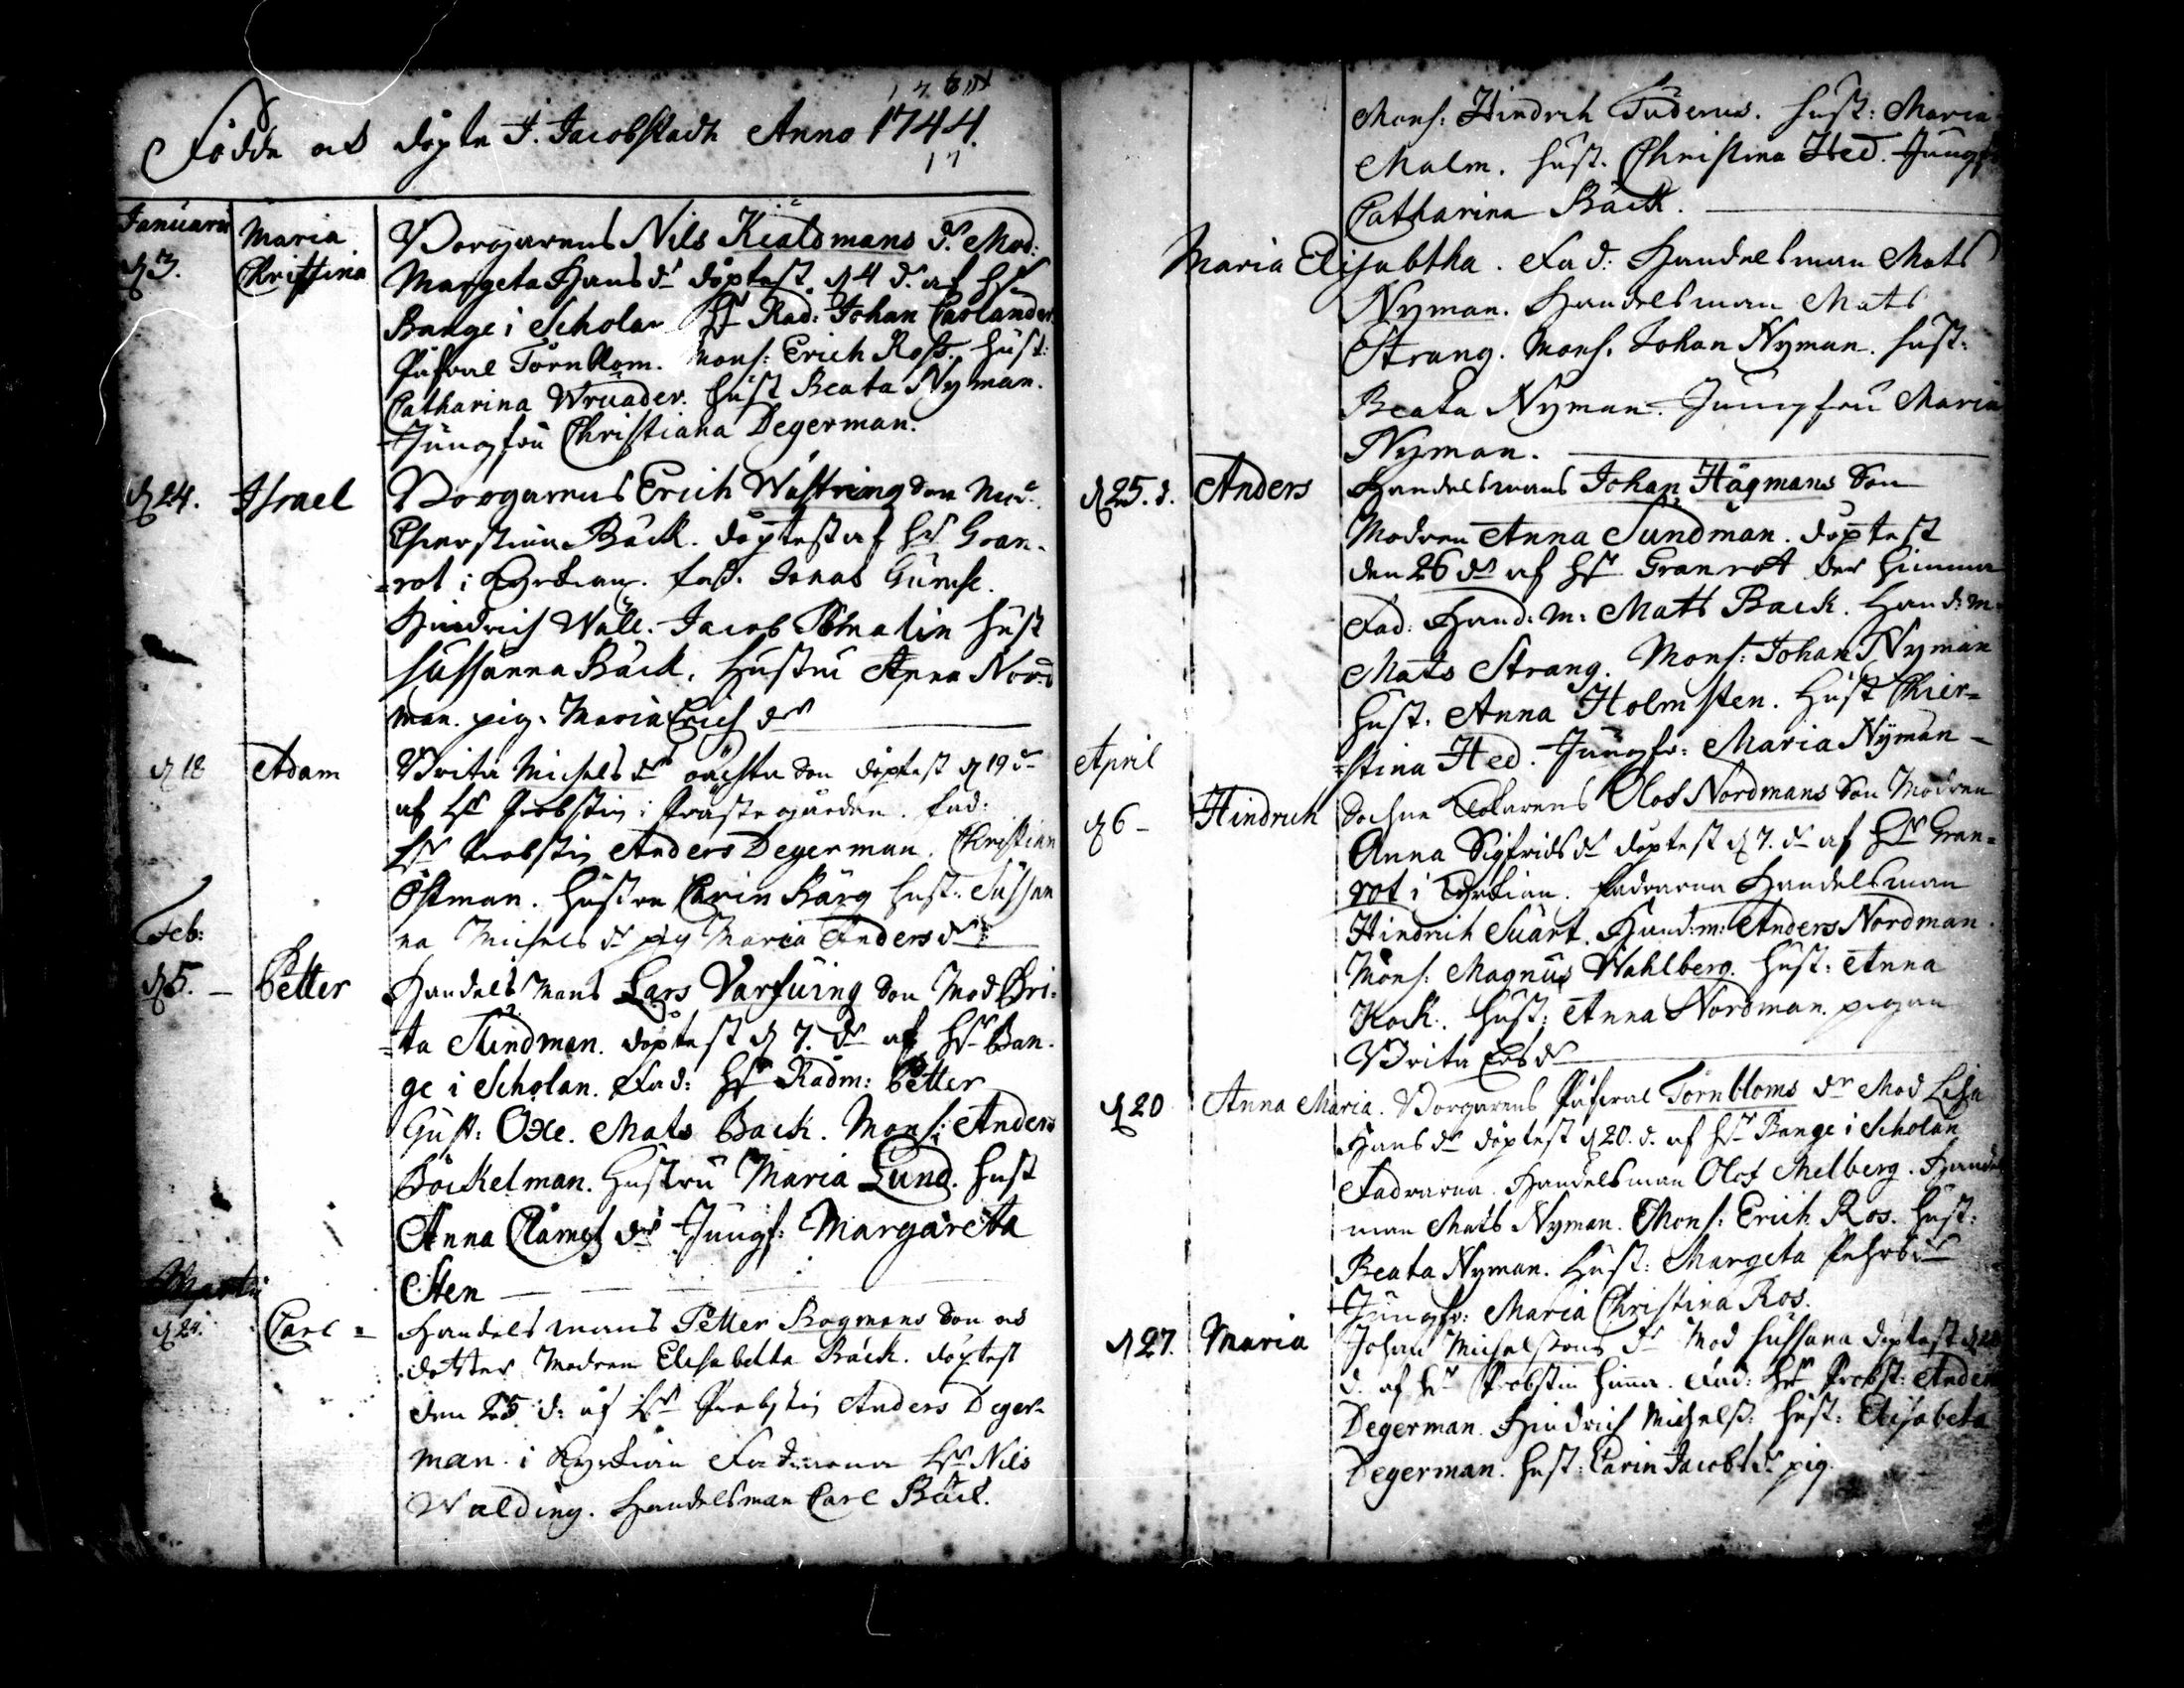 Födde och döpte J. Jacobstadh Anno 1744.
17
Januarii
d 3.
Maria
Christina
Borgarens Nils Kialdmans dr Mod:
Margeta Hans dr döptest d 4 d. af Hr
Bange i Scholan Hr Råd: Johan Carlander
Påfwal Törnblom. Mons: Erich Ross. Hust:
Catharina Wruader. Hust Beata Nyman.
Jungfru Christiana Degerman.
d 24.
Israel
Borgarens Erich Wästring Son Mod:
Chierstina Bäck. döptest af Hr Gran-
=rot i Kyrkian. fad. Jonas Gumse.
Hindrich Wäll. Jacob Malin Hust
Sussanna Bäck. Hustru Anna Nord
man. pig: Maria Erich dr
d 18
Adam
Brita Michels dr oächta Son döptest d 19 d
af Hr Probsten i Prästegården. fad:
Hr Probsten Anders Degerman. Christian
Östman. Hustru Carin Bärg Hust: Sussan
na Michels dr pig Maria Anders dr
Feb:
d 5. -
Petter
Handels Mans Lars Varfuing Son Mod Bri-
=ta Sundman. döptest d 7. dr af Hr Ban-
ge i Scholan. Fad: Hr Rådm: Petter
Gust: Oxe. Mats Back. Mons: Anders
Böckelman. Hustru Maria Lund. Hust
Anna Clämes dr Jungf: Margareta
Sten
Martii
d 24.
Carl =
Handels mans Petter Bogmans Son oc
dotter Modren Elisabetha Bäck. döptest
den 25 d: af Hr Probsten Anders Deger-
man i Kyrkian Fadrarna Hr Nils
Walding. Handelsman Carl Bäck.
Mons: Hindrch Tuderus. Hust: Maria
Malm. Hust. Christina Hed. Jungf
Catharina Bäck.
Maria Elisabtha. Fad: Handelsman Mats
Nyman. Handelsman Mats
Strang. Mons. Johan Nyman. Hust:
Beata Nyman. Jungfru Maria
Nyman.
d 25. d.
Anders
Handelsmans Johan Hägmans Son
Modren Anna Sundman. döptest
den 26 dr af Hr Granrot der Himma
Fad: Hand: m: Mats Back. Hand: m
Mats Strang. Mons: Johan Nyman
Hust. Anna Holmsten. Hust Chier=
=stina Hed. Jungfr: Maria Nyman -
April
d 6 -
Hindrich
Sochne Olof Nordmans Son Modren
Anna Sigfrids dr döptest d 7. dr af Hr Gran=
rot i Kyrkian. Fadrarna Handelsman
Hindrich Suart. Hand: m: Anders Nordman.
Mons: Magnus Wahlberg. Hust: Anna
Kock. Hust: Anna Nordman. pigan
Brita Ers dr
d 20
Anna Maria. Borgarens Påfwal Törnbloms dr Mod Lisa
Hans dr döptest d 20. d. af Hr Bange i Scholan
Fadrarna. Handelsman Olof Melberg. Handels
man Mats Nyman. Mons: Erich Ros. Hust:
Beata Nyman. Hust: Margeta Pehrs dr
Jungfr: Maria Christina Ros.
d 27.
Maria
Johan Michelssons dr Mod Sussana döptest d 28
d. af Hr Probsten Himma. Fad: Hr Probst: Anders
Degerman. Hindrich Michelss: Hust: Elisabeta
Degerman. Hust: Carin Jacobs dr pig.